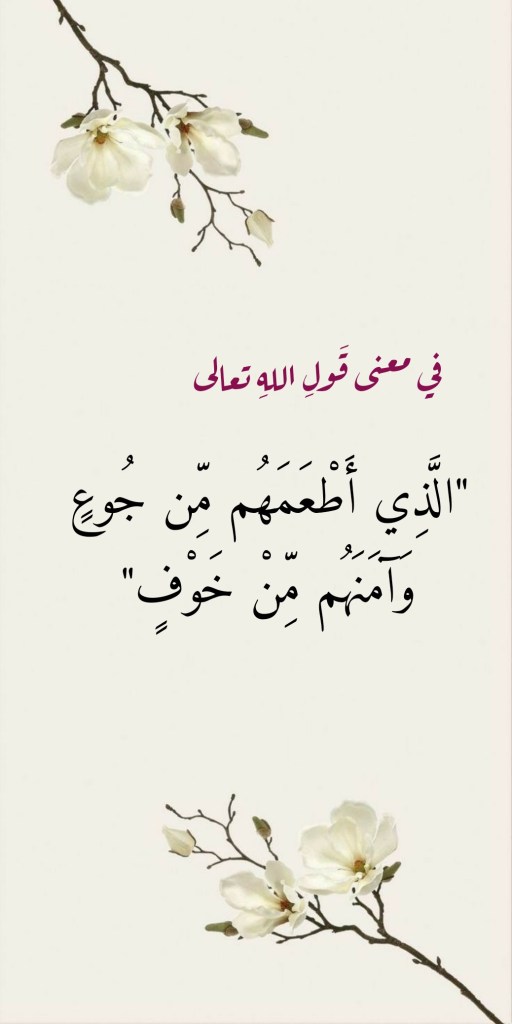 في معنى قَولِ اللهِ تعالى
"الَّذِي أَطْعَمَهُم مِّن جُوعٍ
وَآمَنَهُم مِّنْ خَوْفٍ"